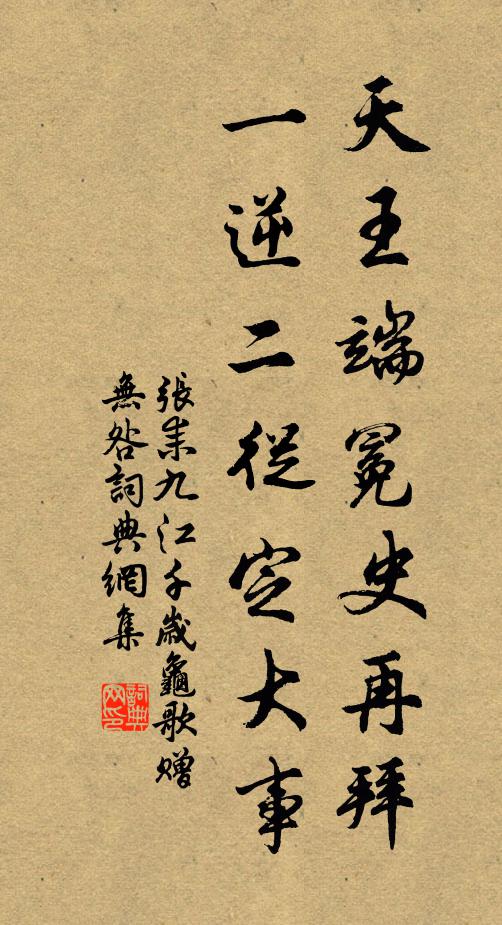 天王端冕史再拜
一逆二從定大事
張耒九江千歲龜歌贈
無咎詞典網集
詞典网印